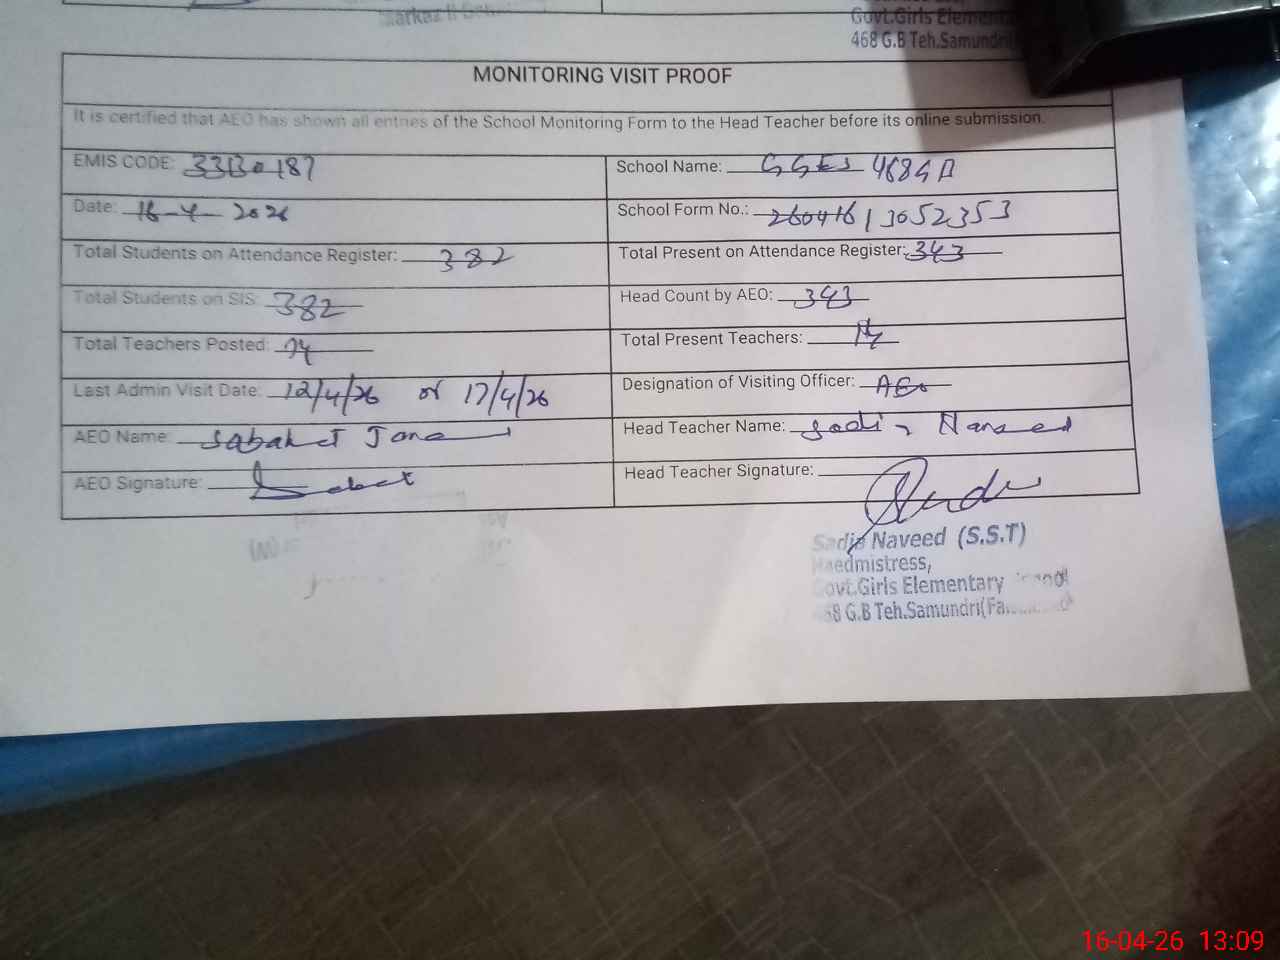 Govt.Girls Elementa
468 G.B Teh.Samundri(
MONITORING VISIT PROOF
It is certified that AEO has shown all entries of the School Monitoring Form to the Head Teacher before its online submission.
EMIS CODE: 33130187 School Name: GGES 468GB
Date: 16-4-2026 School Form No.: 26041613052353
Total Students on Attendance Register: 382 Total Present on Attendance Register: 343
Total Students on SIS: 382 Head Count by AEO: 343
Total Teachers Posted: 14 Total Present Teachers: 14
Last Admin Visit Date: 12/4/26 or 17/4/26 Designation of Visiting Officer: AEO
AEO Name: Sabahat Head Teacher Name: Sadia Naveed
AEO Signature: Head Teacher Signature:
Sadia Naveed (S.S.T)
Haedmistress,
Govt.Girls Elementary School
468 G.B Teh.Samundri(Fa
16-04-26 13:09